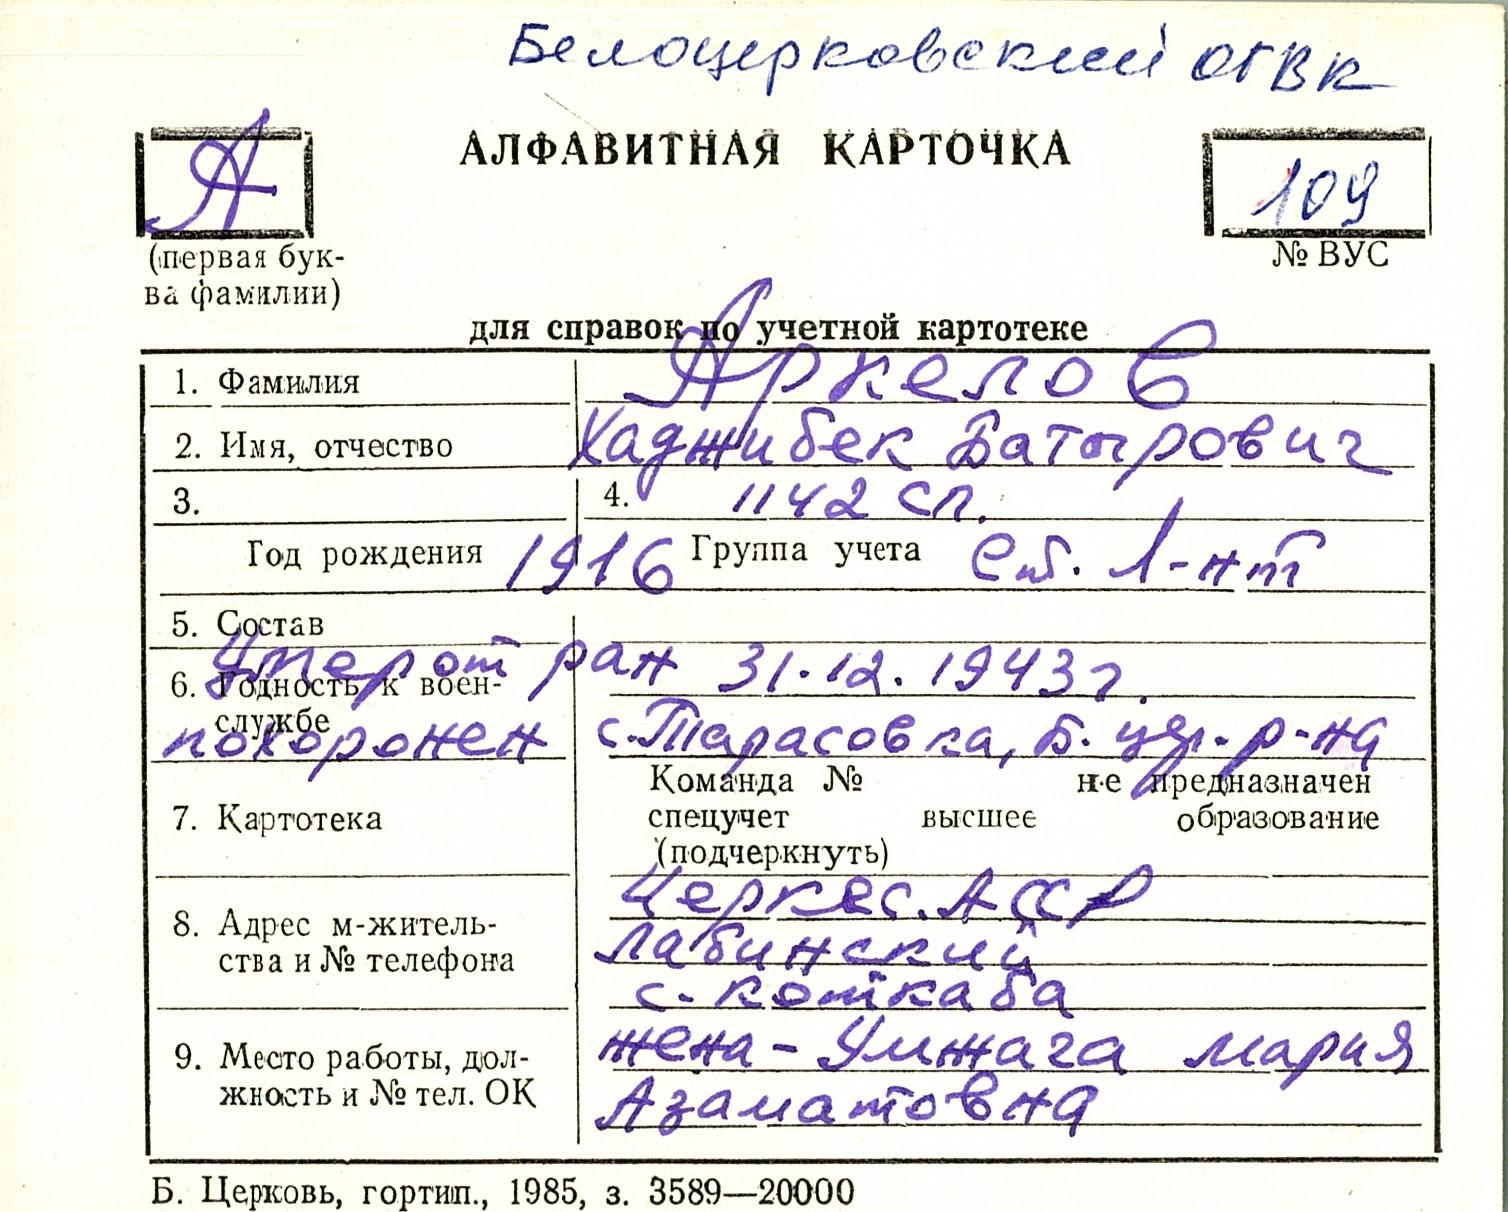 Белоцерковский ОГВК
А
АЛФАВИТНАЯ КАРТОЧКА
109
(первая бук-
ва фамилии)
№ ВУС
для справок по учетной картотеке
1. Фамилия Аркелов
2. Имя, отчество Хаджибек Батырович
3. 4. 1142 сп.
Год рождения 1916 Группа учета Ст. л-нт
5. Состав
Умер от ран 31.12.1943 г.
6. Годность к воен-
службе
похоронен с. Тарасовка, Б. цер. р-на
7. Картотека
Команда № не предназначен
спецучет высшее образование
(подчеркнуть)
8. Адрес м-житель-
ства и № телефона
Черкес. АССР
Лабинский
с. коткаба
9. Место работы, дол-
жность и № тел. ОК
жена - Умжага Мария
Азаматовна
Б. Церковь, гортип., 1985, з. 3589—20000